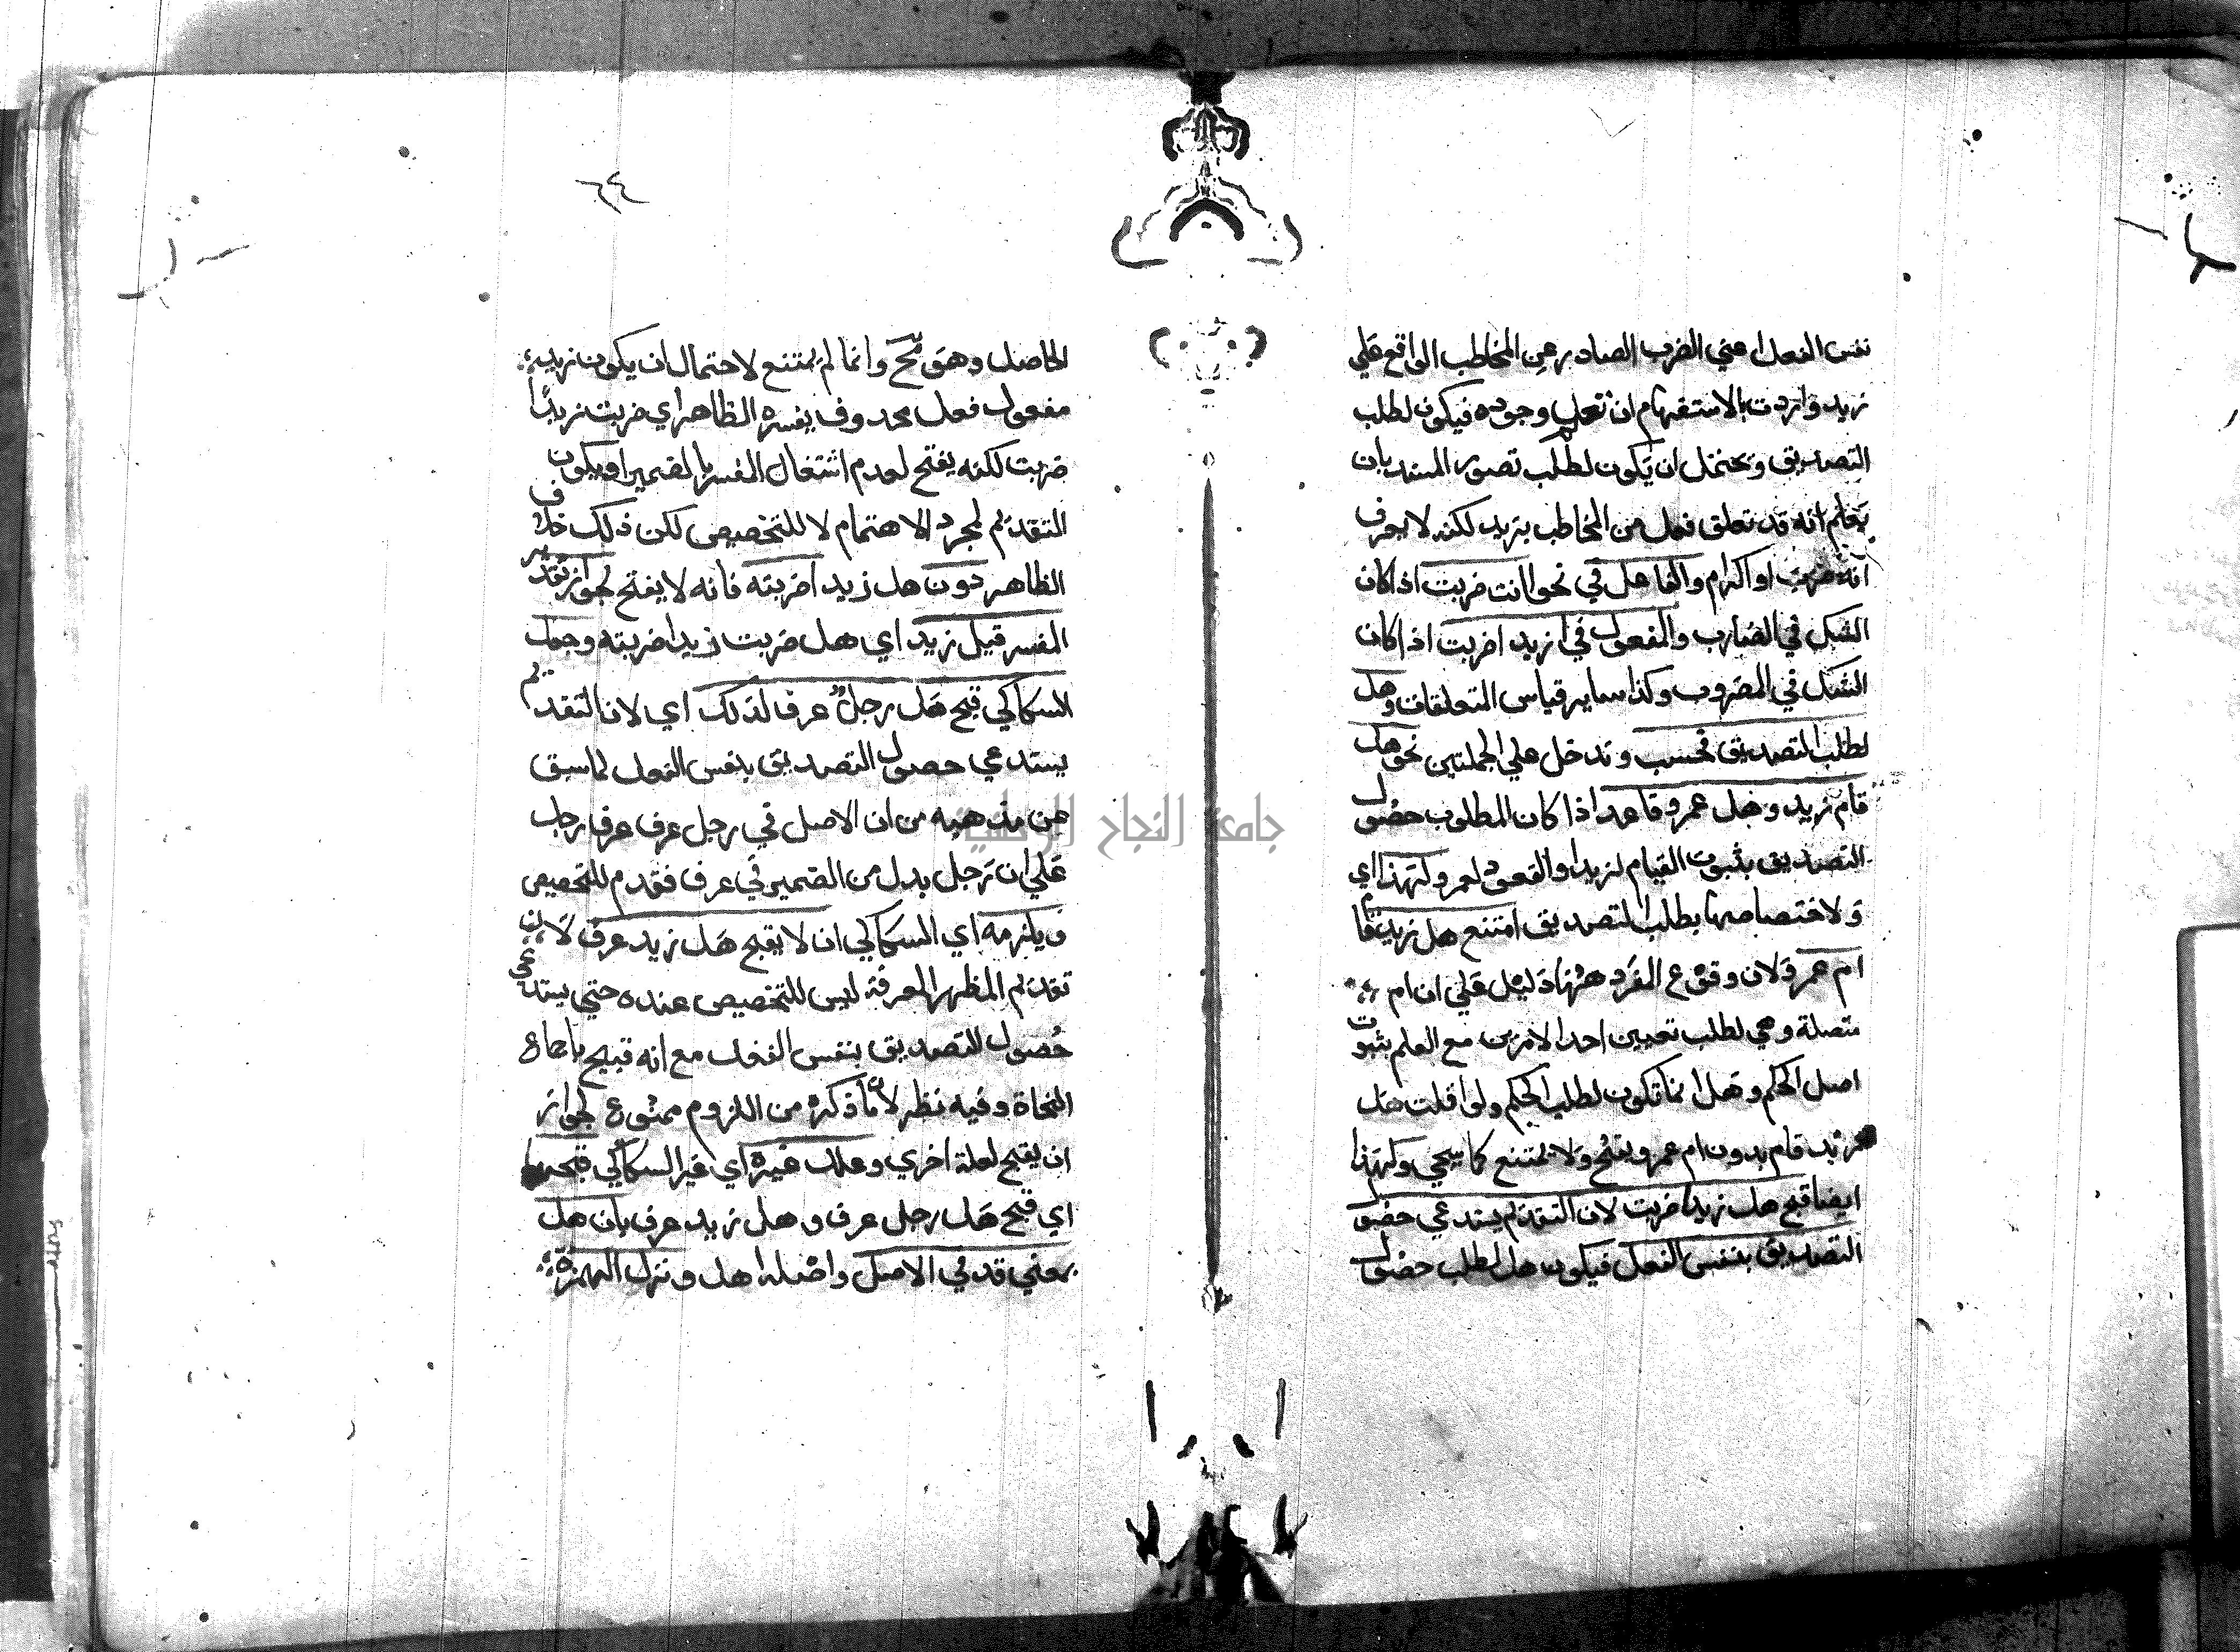 نفس الفعل اعني الضرب الصادر عن المخاطب الواقع علي
زيد واردت بالاستفهام ان تعلم وجوده فيكون لطلب
التصديق ويحتمل ان يكون لطلب تصور المسند بان
تعلم انه قد تعلق فعل من المخاطب بزيد لكنه لا يعرف
انه ضرب او اكرام والفاعل في نحو اانت ضربت اذا كان
الشك في الضارب والمفعول في ازيدا ضربت اذا كان
الشك في المضروب وكذا ساير قياس المتعلقات وهل
لطلب التصديق فحسب وتدخل علي الجملتين نحو هل
قام زيد وهل عمرو قاعد اذا كان المطلوب حصول
التصديق بثبوت القيام لزيد او القعود لعمرو ولهذا اي
ولاختصاصها بطلب التصديق امتنع هل زيد قام
ام عمرو لان وقوع المفرد ههنا دليل علي ان ام
متصلة وهي لطلب تعيين احد الامرين مع العلم بثبوت
اصل الحكم وهل انما تكون لطلب الحكم ولو اقلت هل
زيد قام بدون ام عمرو يقبح ولا يمتنع كما سيجي ولهذا
ايضا قبح هل زيدا ضربت لان التقديم يستدعي حصول
التصديق بنفس الفعل فيكون هل لطلب حصول
٦٤
الحاصل وهو وانما لم يمتنع لاحتمال ان يكون زيد
مفعول فعل محدوف يفسره الظاهر اي ضربت زيدا
ضربت لكنه يقبح لعدم اشتغال المفسر بالضمير او يكون
التقديم لمجرد الاهتمام لا للتخصيص لكن ذلك خلاف
الظاهر دون هل زيدا ضربته فانه لا يقبح لجواز تقدير
المفسر قبل زيد اي هل ضربت زيدا ضربته وجعل
السكاكي قبح هل رجل عرف لذلك اي لان التقديم
يستدعي حصول التصديق بنفس الفعل لما سبق
من مذهبه من ان الاصل في رجل عرف عرف رجل
علي ان رجل بدل من الضمير في عرف فقدم للتخصيص
ويلزمه اي السكاكي ان لا يقبح هل زيد عرف لان
تقديم المظهر المعرفة ليس للتخصيص عنده حتي يستدعي
حصول التصديق بنفس الفعل مع انه قبيح باجماع
النحاة وفيه نظر لان ما ذكره من اللزوم ممنوع لجواز
ان يقبح لعلة اخري وعلل غيره اي غير السكاكي قبحهما
اي قبح هل رجل عرف وهل زيد عرف بان هل
بمعني قد في الاصل واصله اهل وترك الهمزة
جامعة النجاح الوطنية